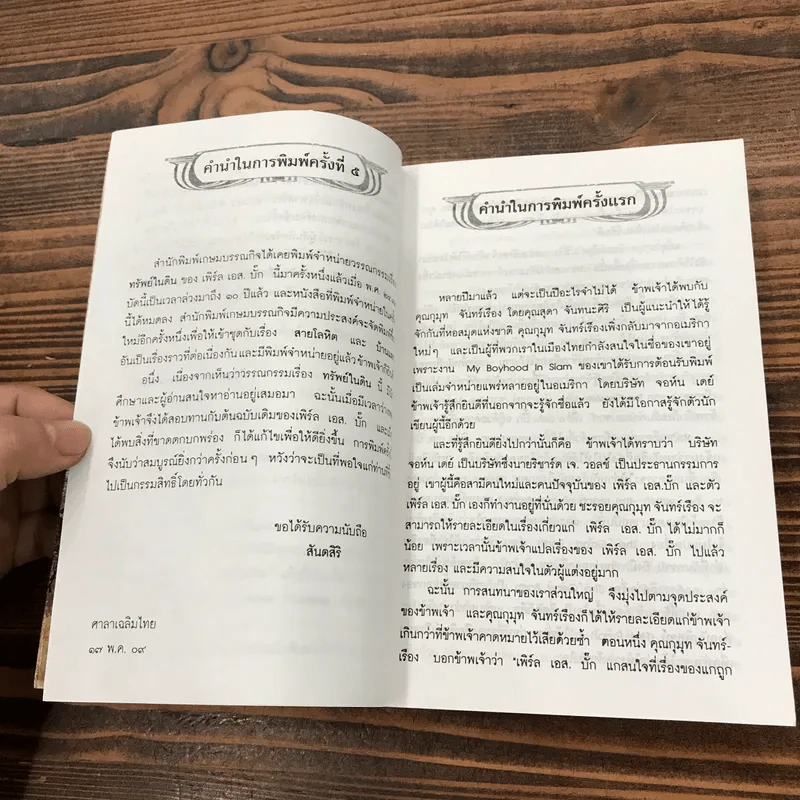 คำนำในการพิมพ์ครั้งที่ ๕
สำนักพิมพ์เกษมบรรณกิจได้เคยพิมพ์จำหน่ายวรรณกรรม
ทรัพย์ในดิน ของ เพิร์ล เอส. บั๊ก นี้มาครั้งหนึ่งแล้วเมื่อ พ.ศ.
บัดนี้เป็นเวลาล่วงมาถึง ๑๐ ปีแล้ว และหนังสือที่พิมพ์จำหน่ายใน
นี้ได้หมดลง สำนักพิมพ์เกษมบรรณกิจมีความประสงค์จะจัดพิมพ์
ใหม่อีกครั้งหนึ่งเพื่อให้เข้าชุดกับเรื่อง สายโลหิต และ บ้าน
อันเป็นเรื่องราวที่ต่อเนื่องกัน และมีพิมพ์จำหน่ายอยู่แล้ว
อนึ่ง เนื่องจากเห็นว่าวรรณกรรมเรื่อง ทรัพย์ในดิน นี้
ศึกษาและผู้อ่านสนใจหาอ่านอยู่เสมอมา ฉะนั้นเมื่อมีเวลาว่าง
ข้าพเจ้าจึงได้สอบทานกับต้นฉบับเดิมของเพิร์ล เอส. บั๊ก
ได้พบสิ่งที่ขาดตกบกพร่อง ก็ได้แก้ไขเพื่อให้ดียิ่งขึ้น การพิมพ์
จึงนับว่าสมบูรณ์ยิ่งกว่าครั้งก่อน ๆ หวังว่าจะเป็นที่พอใจแก่ท่าน
ไปเป็นกรรมสิทธิ์โดยทั่วกัน
ขอได้รับความนับถือ
สันตสิริ
ศาลาเฉลิมไทย
๑๗ พ.ค. ๐๙
คำนำในการพิมพ์ครั้งแรก
หลายปีมาแล้ว แต่จะเป็นปีอะไรจำไม่ได้ ข้าพเจ้าได้พบกับ
คุณกุมุท จันทร์เรือง โดยคุณสุดา จันทนะศิริ เป็นผู้แนะนำให้ได้รู้
จักกันที่หอสมุดแห่งชาติ คุณกุมุท จันทร์เรืองเพิ่งกลับมาจากอเมริกา
ใหม่ ๆ และเป็นผู้ที่พวกเราในเมืองไทยกำลังสนใจในชื่อของเขาอยู่
เพราะงาน My Boyhood In Siam ของเขาได้รับการต้อนรับพิมพ์
เป็นเล่มจำหน่ายแพร่หลายอยู่ในอเมริกา โดยบริษัท จอห์น เดย์
ข้าพเจ้ารู้สึกยินดีที่นอกจากจะรู้จักชื่อแล้ว ยังได้มีโอกาสรู้จักตัวนัก
เขียนผู้นี้อีกด้วย
และที่รู้สึกยินดียิ่งไปกว่านั้นก็คือ ข้าพเจ้าได้ทราบว่า บริษัท
จอห์น เดย์ เป็นบริษัทซึ่งนายริชาร์ด เจ. วอลซ์ เป็นประธานกรรมการ
อยู่ เขาผู้นี้คือสามีคนใหม่และคนปัจจุบันของ เพิร์ล เอส.บั๊ก และตัว
เพิร์ล เอส. บั๊ก เองก็ทำงานอยู่ที่นั่นด้วย ชะรอยคุณกุมุท จันทร์เรือง จะ
สามารถให้รายละเอียดในเรื่องเกี่ยวแก่ เพิร์ล เอส. บั๊ก ได้ไม่มากก็
น้อย เพราะเวลานั้นข้าพเจ้าแปลเรื่องของ เพิร์ล เอส. บั๊ก ไปแล้ว
หลายเรื่อง และมีความสนใจในตัวผู้แต่งอยู่มาก
ฉะนั้น การสนทนาของเราส่วนใหญ่ จึงมุ่งไปตามจุดประสงค์
ของข้าพเจ้า และคุณกุมุท จันทร์เรืองก็ได้ให้รายละเอียดแก่ข้าพเจ้า
เกินกว่าที่ข้าพเจ้าคาดหมายไว้เสียด้วยซ้ำ ตอนหนึ่ง คุณกุมุท จันทร์-
เรือง บอกข้าพเจ้าว่า "เพิร์ล เอส. บั๊ก แกสนใจที่เรื่องของแกถูก